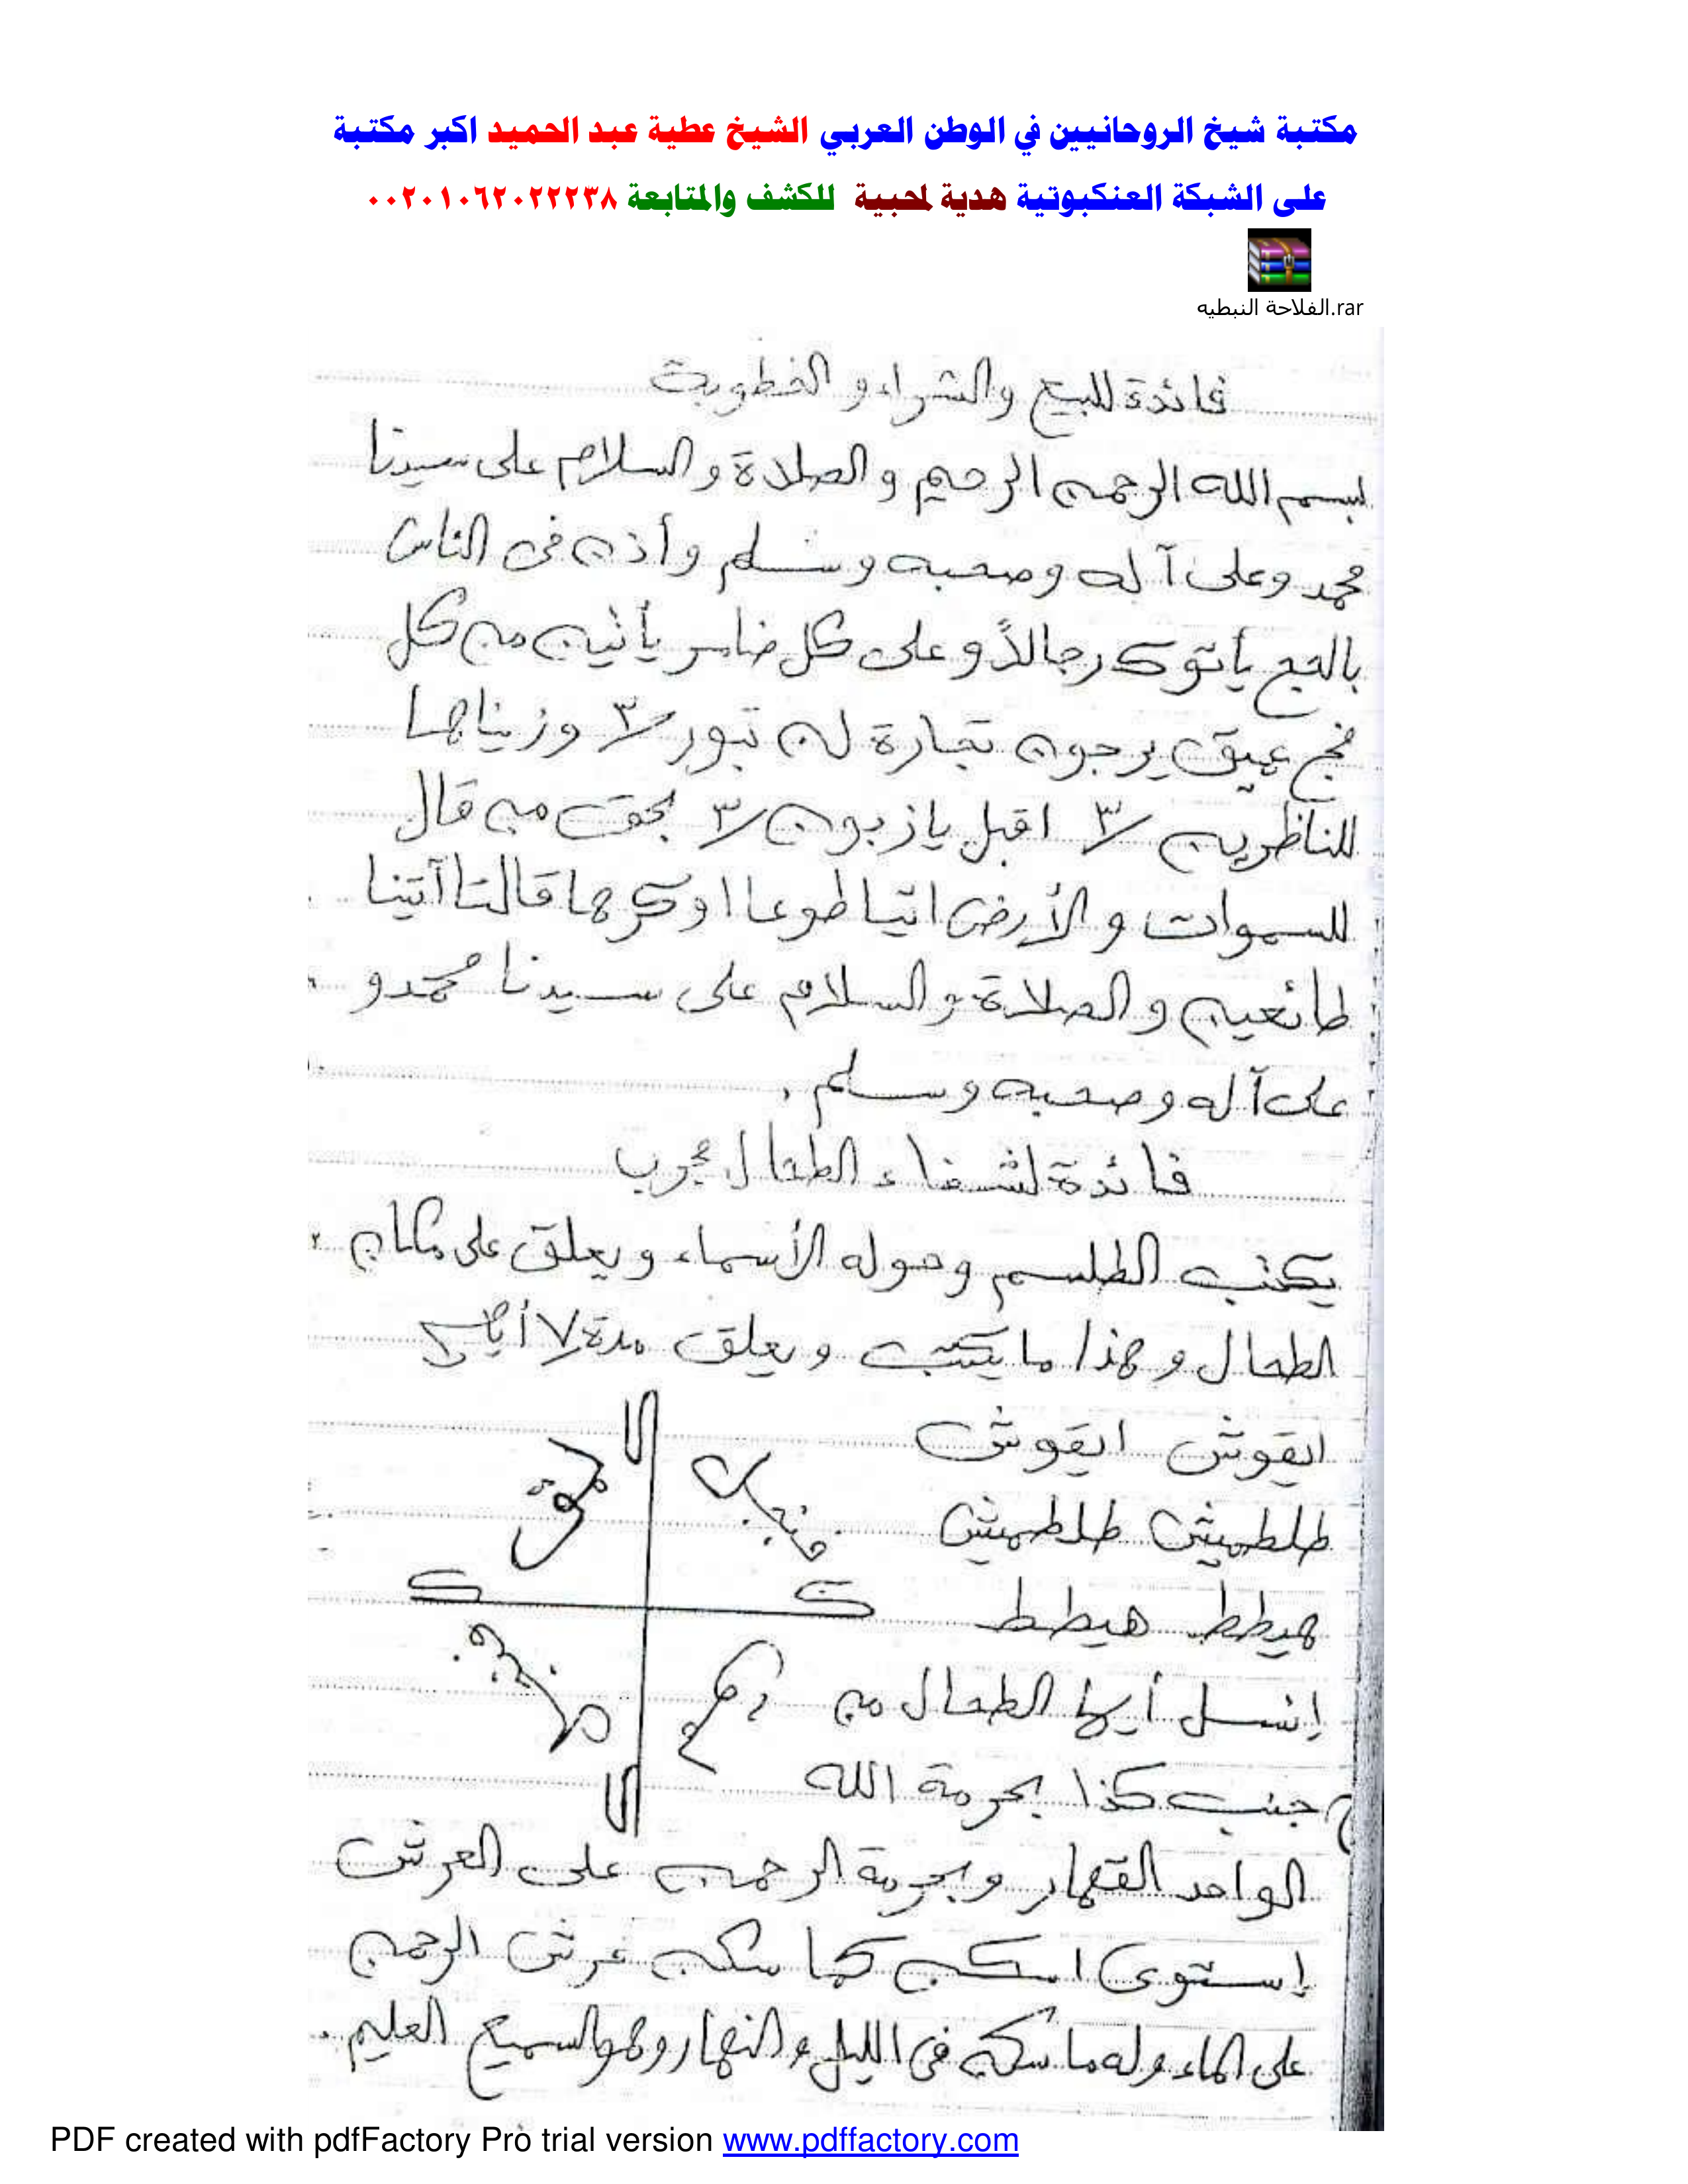 مكتبة شيخ الروحانيين في الوطن العربي الشيخ عطية عبد الحميد اكبر مكتبة
على الشبكة العنكبوتية هدية لمحبية للكشف والمتابعة ٠٠٢٠١٠٦٢٠٢٢٢٣٨
الفلاحة النبطيه.rar
فائدة للبيع والشراء و الخطوبة
بسم الله الرحمن الرحيم والصلاة والسلام على سيدنا
محمد وعلى آله وصحبه وسلم وأذن فى الناس
بالحج يأتوك رجالاً وعلى كل ضامر يأتين من كل
فج عميق يرجون تجارة لن تبور ٣/ وزيناها
للناظرين ٣/ اقبل يا زبون ٣/ بحق من قال
للسموات والأرض اتيا طوعا اوكرها قالتا آتينا
طائعين والصلاة والسلام على سيدنا محمد و
على آله وصحبه وسلم .
فائدة لشفاء الطحال مجرب
يكتب الطلسم وحوله الأسماء ويعلق على مكان
الطحال وهذا ما يكتب ويعلق مدة ٧ أيام
ايقوش ايقوش
طلطميش طلطميش
هيطط هيطط
إنسل أيها الطحال من
جنب كذا بحرمة الله
الواحد القهار وبحرمة الرحمن على العرش
إستوى اسكن كما سكن عرش الرحمن
على الماء وله ما سكن فى الليل والنهار وهو السميع العليم .
PDF created with pdfFactory Pro trial version www.pdffactory.com